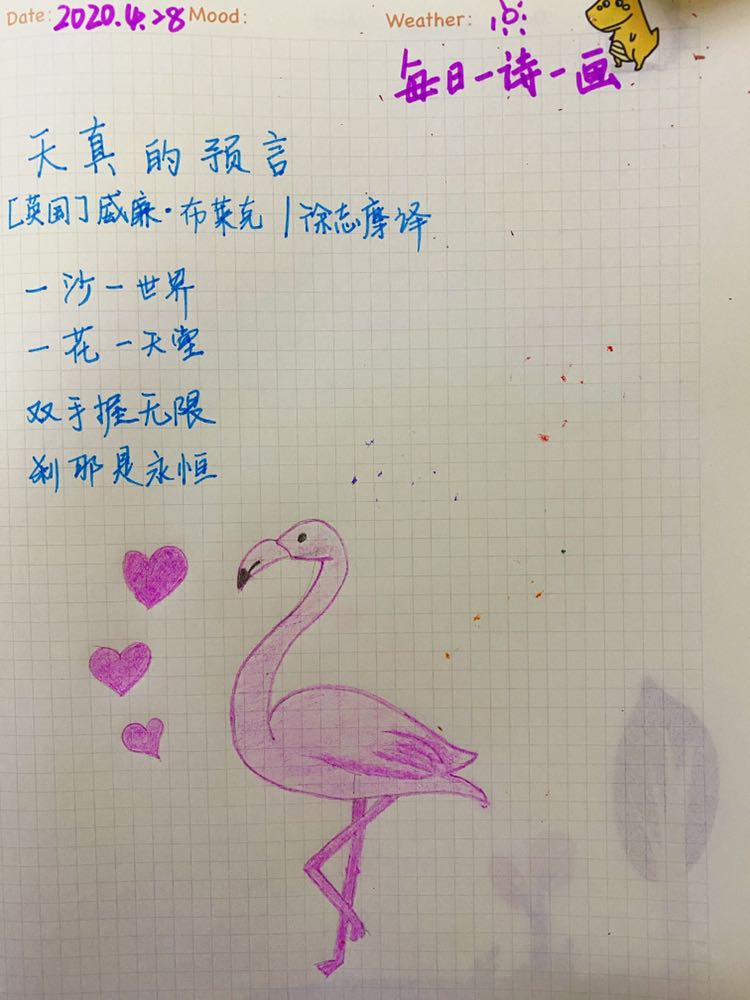 Date: 2020.4.28 Mood: Weather:
每日一诗一画
天真的预言
[英国]威廉·布莱克 | 徐志摩译
一沙一世界
一花一天堂
双手握无限
刹那是永恒